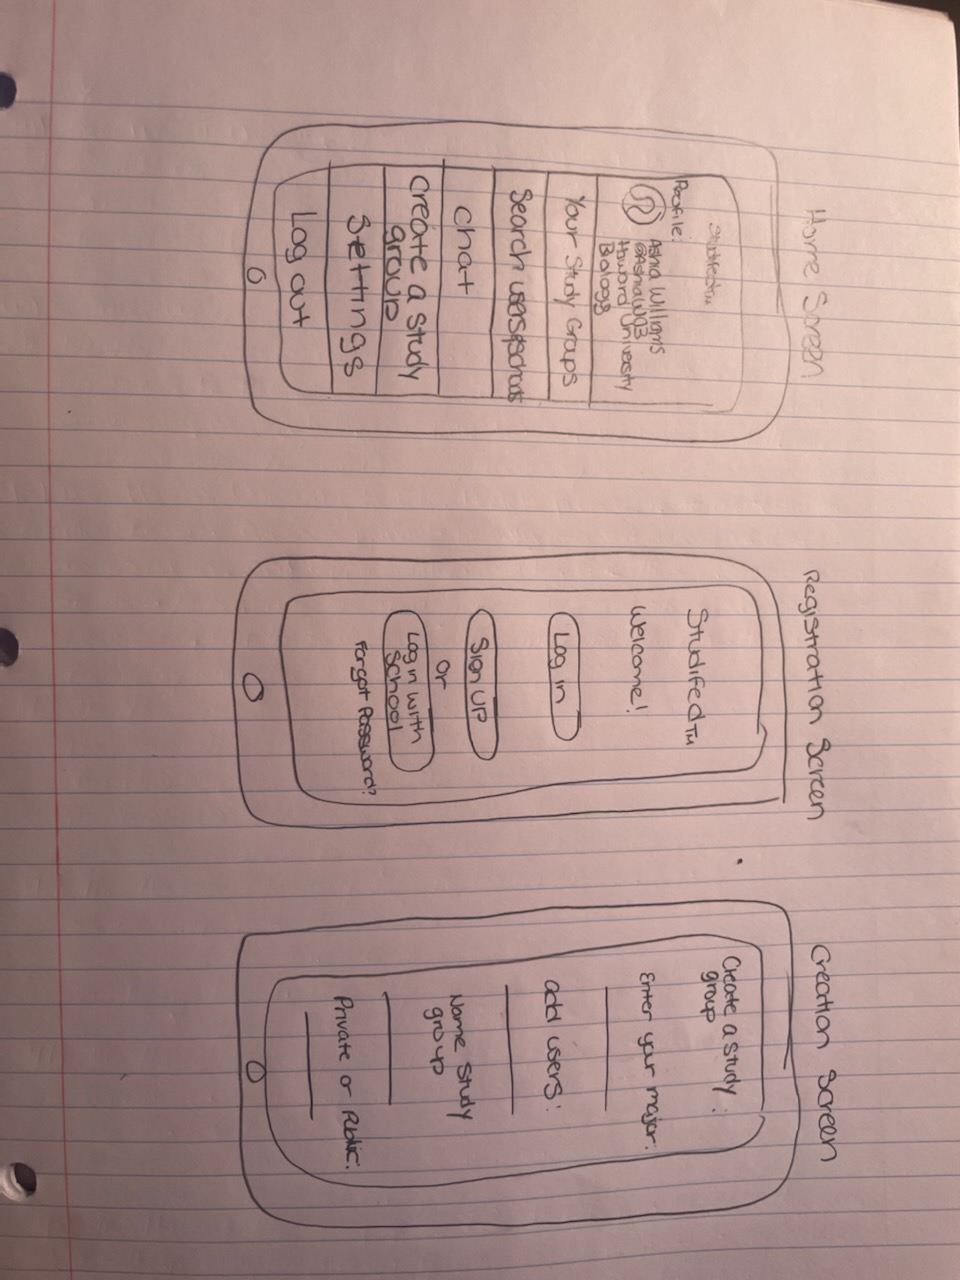 Home Screen
Studifed™
Profile:
Ashia Williams
Howard University
Biology
Your Study Groups
Search users/schools
Chat
Create a Study
group
Settings
Log out
Registration Screen
Studifed™
Welcome!
Log in
Sign UP
or
Log in with
School
Forgot Password?
Creation Screen
Create a study
group:
Enter your major:
add users:
Name study
group
Private or Public: